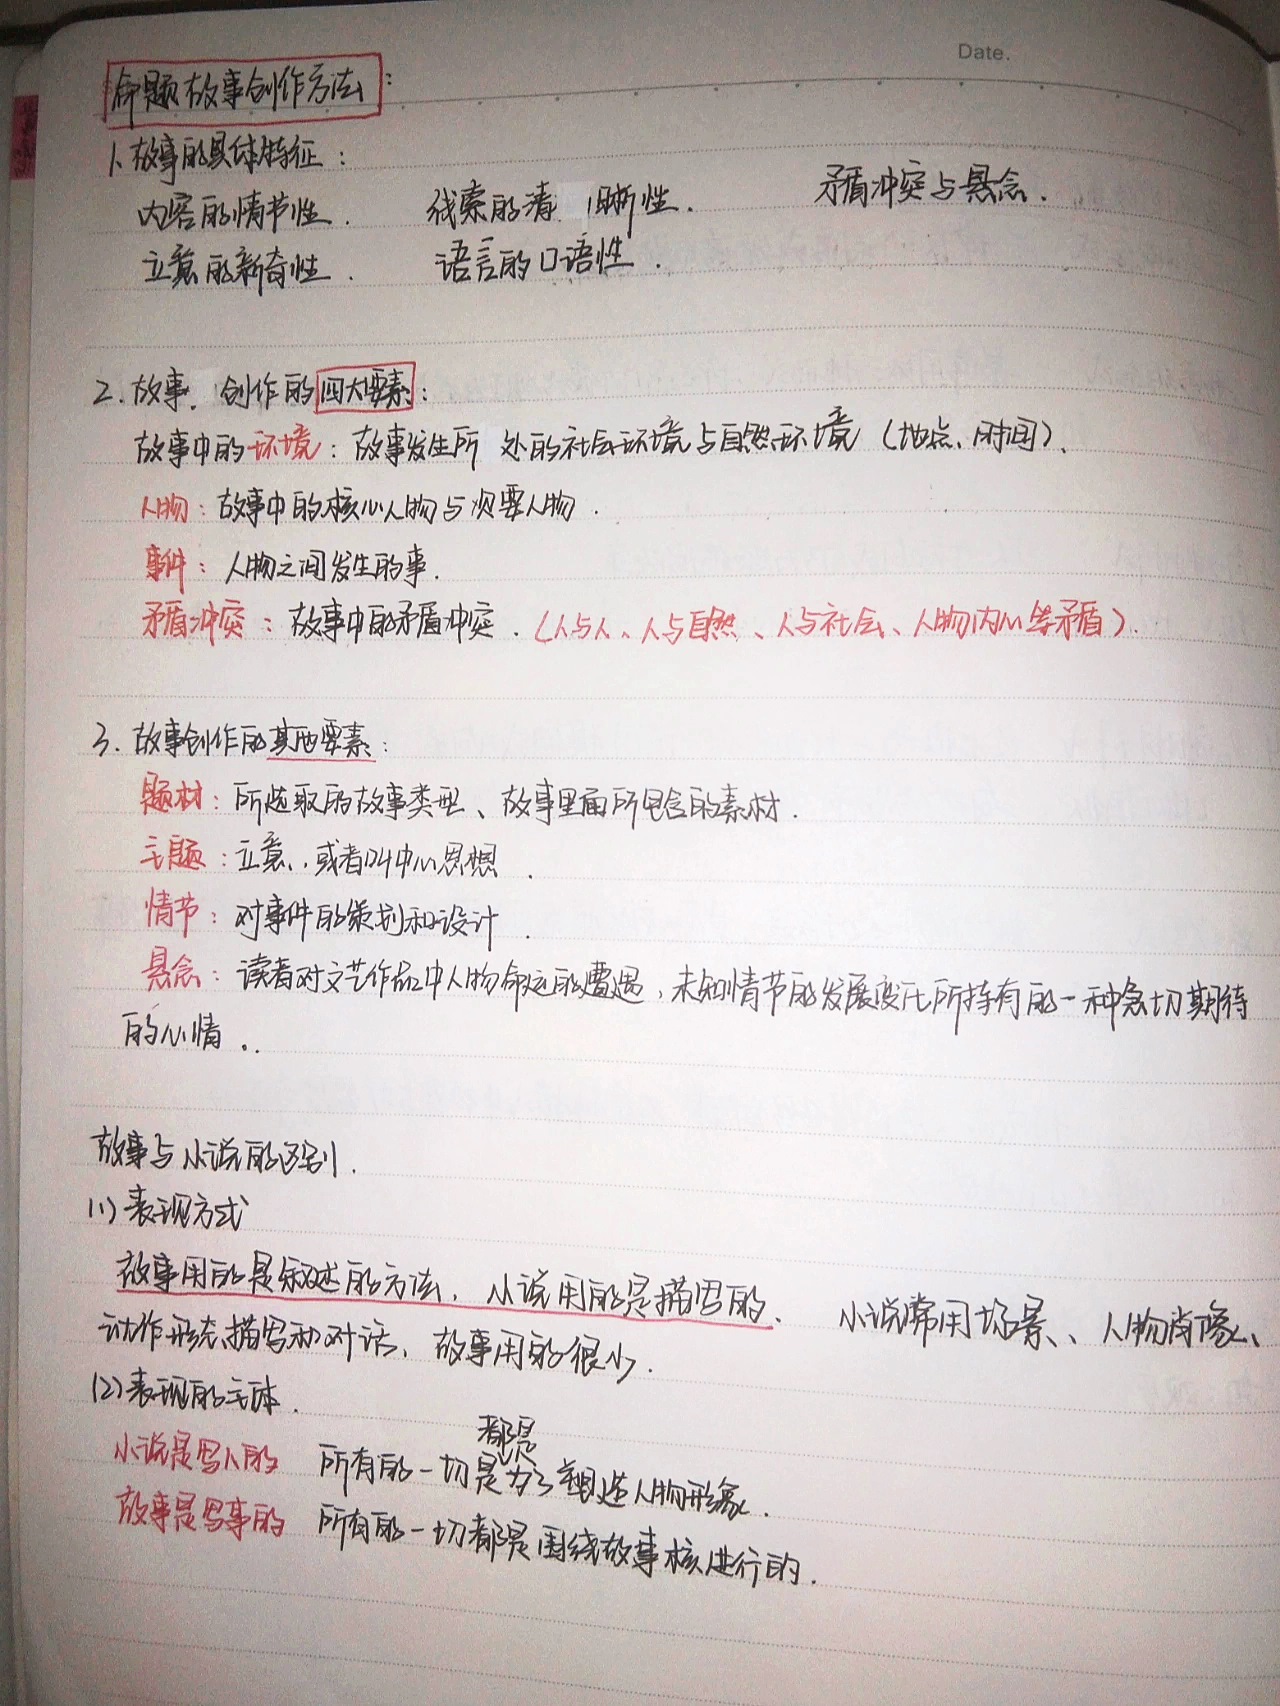 Date.
命题故事创作方法：
1、故事的具体特征：
内容的情节性. 线索的清晰性. 矛盾冲突与悬念.
立意的新奇性. 语言的口语性.
2. 故事.创作的四大要素：
故事中的环境：故事发生所处的社会环境与自然环境（地点、时间）、
人物：故事中的核心人物与次要人物.
事件：人物之间发生的事.
矛盾冲突：故事中的矛盾冲突.（人与人、人与自然、人与社会、人物内心等矛盾）.
3. 故事创作的其他要素：
题材：所选取的故事类型、故事里面所包含的素材.
主题：立意、或者叫中心思想.
情节：对事件的策划和设计.
悬念：读者对文艺作品中人物命运的遭遇，未知情节的发展变化所持有的一种急切期待
的心情..
故事与小说的区别.
(1)表现方式
故事用的是叙述的方法、小说用的是描写的、 小说常用场景、人物肖像、
动作形态描写和对话、故事用的很少.
(2)表现的主体.
都是
小说是写人的 所有的一切是为了塑造人物形象.
故事是写事的 所有的一切都是围绕故事核进行的.